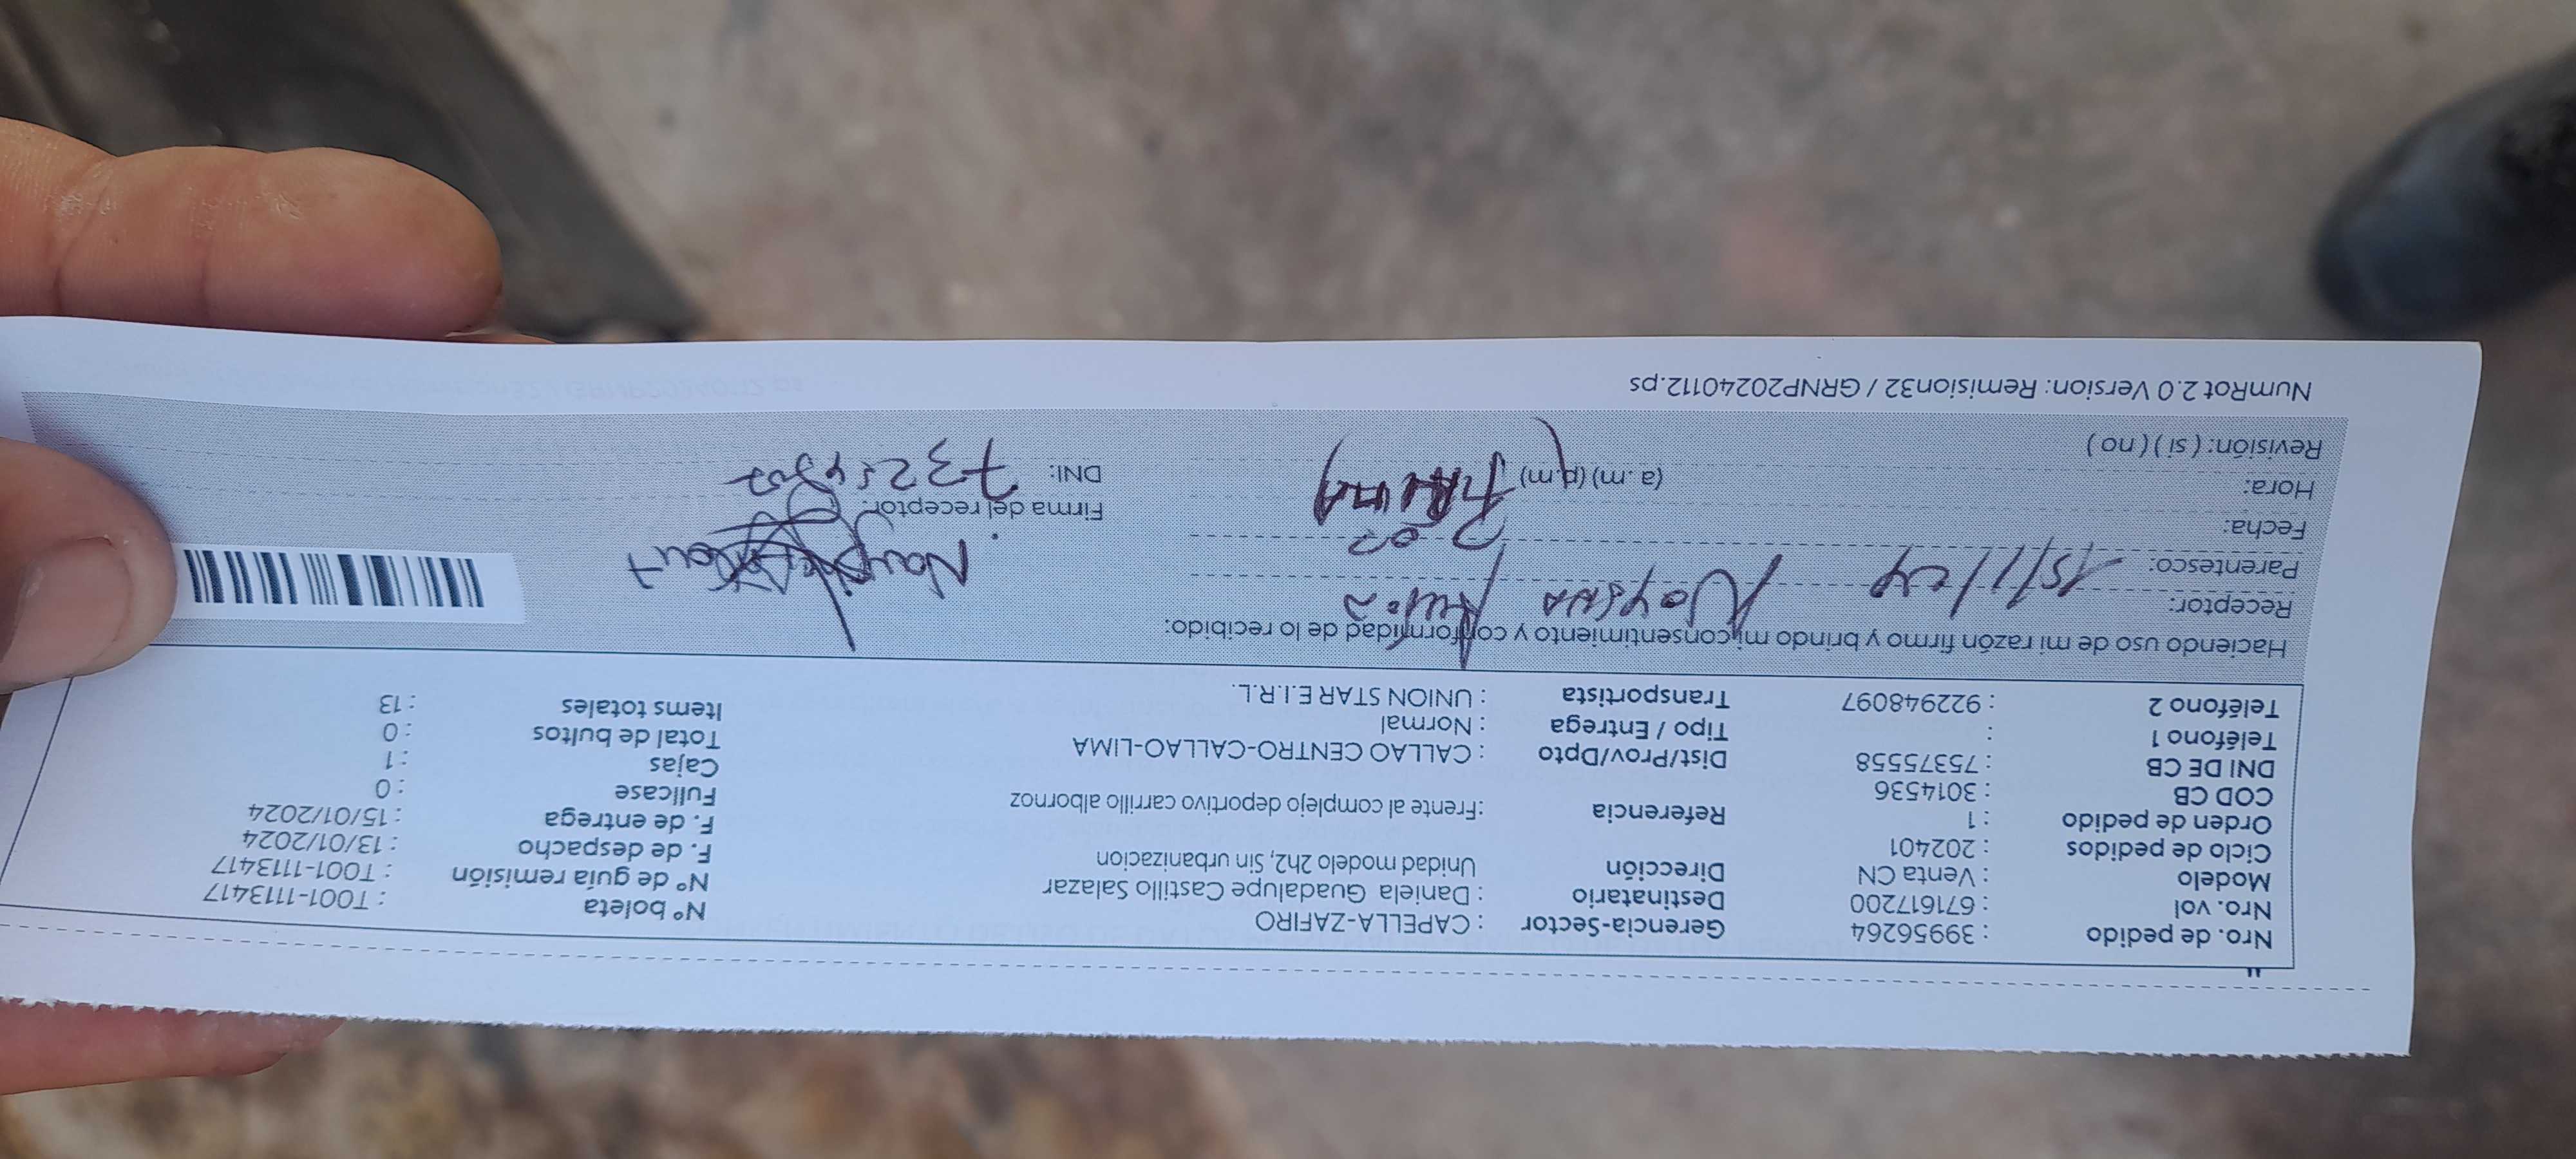 Nro. de pedido : 39956264 Gerencia-Sector : CAPELLA-ZAFIRO Nº boleta : T001-1113417
Nro. vol : 671617200 Destinatario : Daniela Guadalupe Castillo Salazar Nº de guía remisión : T001-1113417
Modelo : Venta CN Dirección Unidad modelo 2h2, Sin urbanizacion F. de despacho : 13/01/2024
Ciclo de pedidos : 202401 F. de entrega : 15/01/2024
Orden de pedido : 1 Referencia :Frente al complejo deportivo carrillo albornoz Fullcase : 0
COD CB : 3014536 Cajas : 1
DNI DE CB : 75375558 Dist/Prov/Dpto : CALLAO CENTRO-CALLAO-LIMA Total de bultos : 0
Teléfono 1 : Tipo / Entrega : Normal Items totales : 13
Teléfono 2 : 922948097 Transportista : UNION STAR E.I.R.L.
Haciendo uso de mi razón firmo y brindo mi consentimiento y conformidad de lo recibido:
Receptor:
Parentesco: 15/1/24
Fecha:
Hora: (a.m) (p.m) Firma del receptor:
Revisión: ( si ) ( no ) DNI:
NumRot 2.0 Version: Remision32 / GRNP20240112.ps